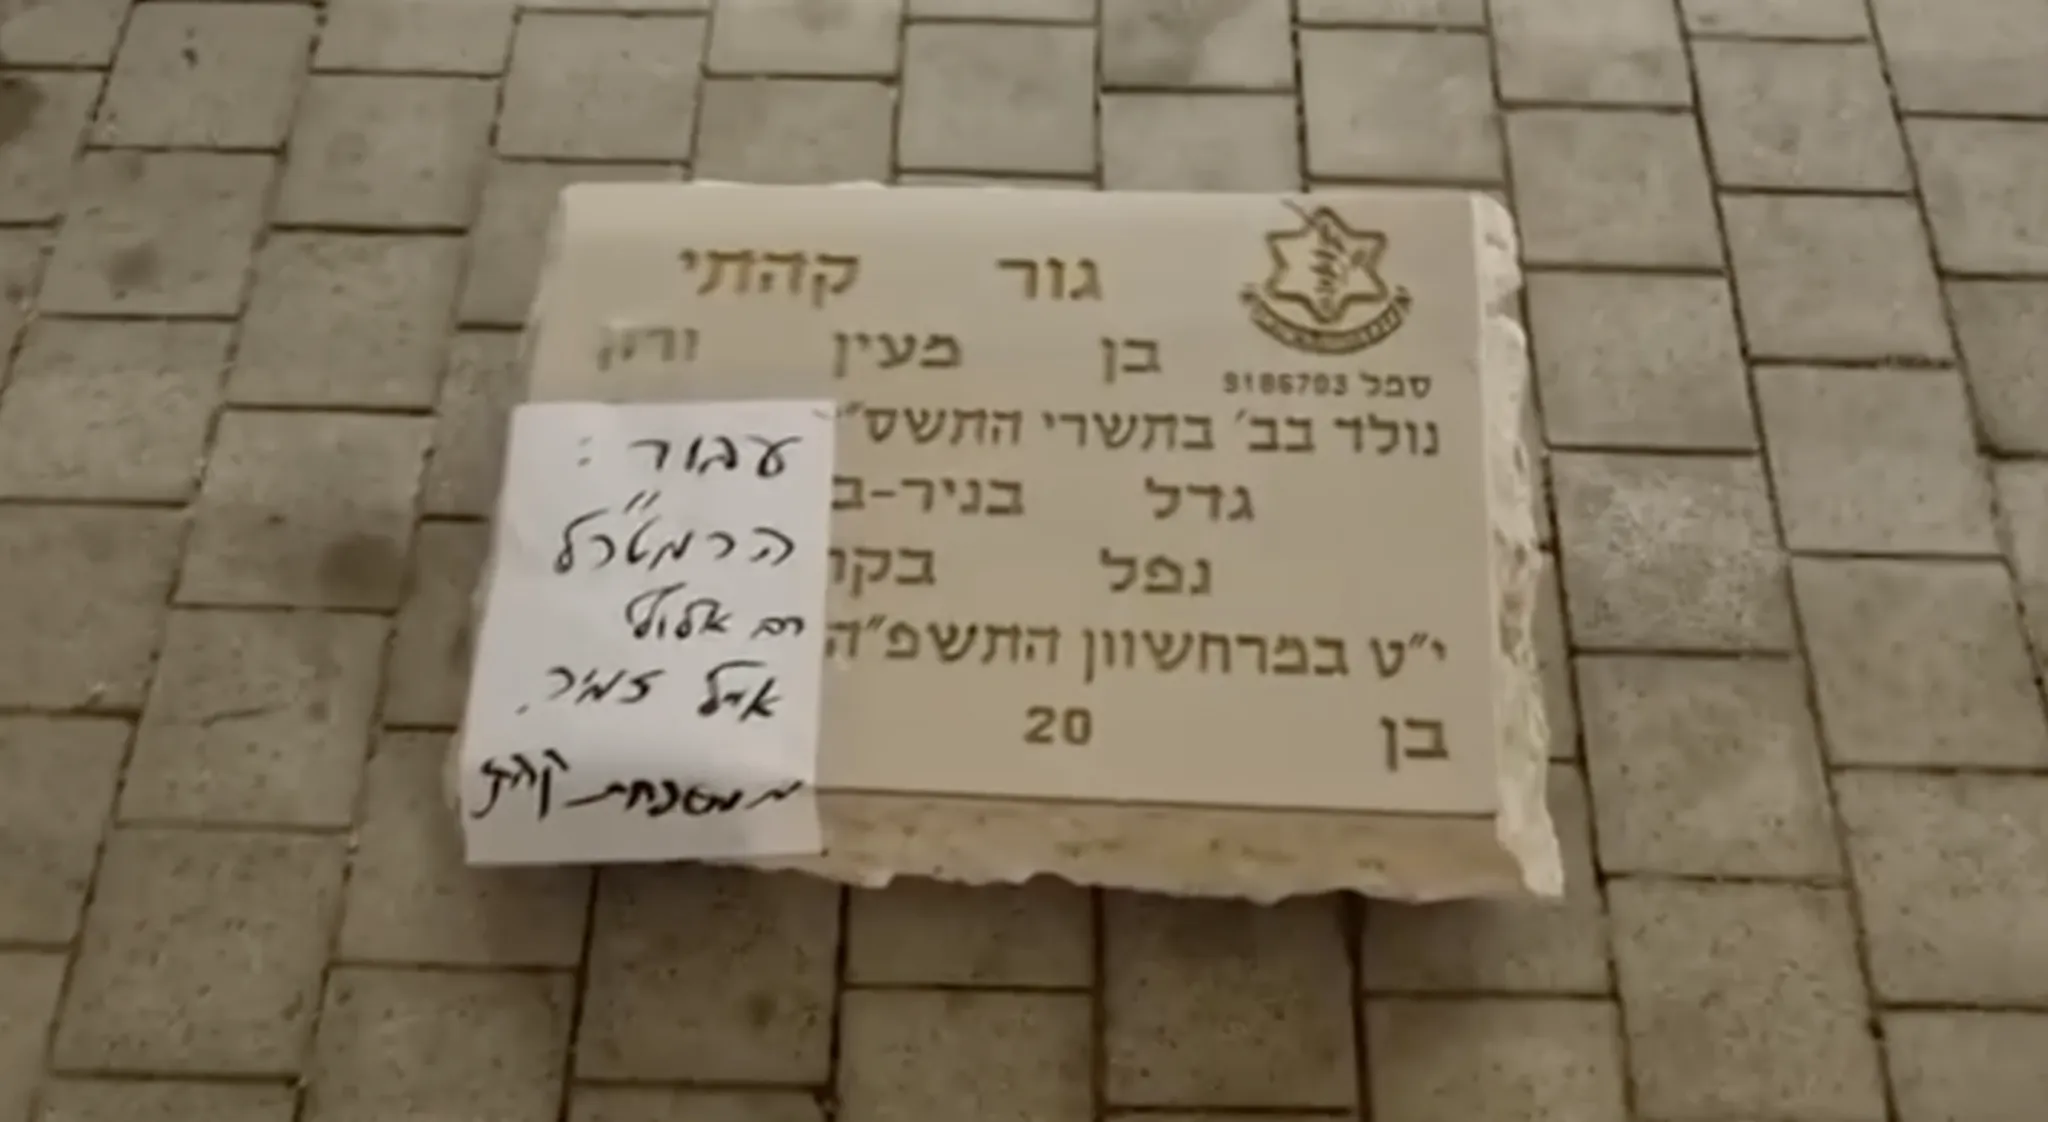 גור קהתי
בן מעין
סמל 9186703
נולד בב׳ בתשרי התשס״
גדל בניר-ב
נפל בקר
י״ט במרחשוון התשפ״ה
בן 20
עבור:
הרמט״כל
רב אלוף
אייל זמיר.
ממשפחת קהתי